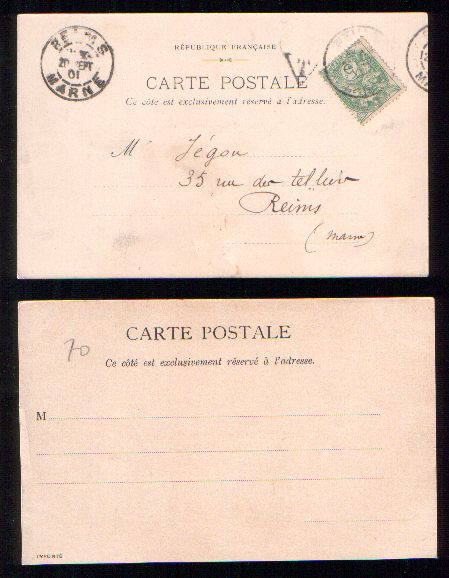 REIMS
20 SEPT
01
MARNE
RÉPUBLIQUE FRANÇAISE
T
CARTE POSTALE
Ce côté est exclusivement réservé à l'adresse.
M Jégou
35 rue des telliers
Reims
(Marne)
70
CARTE POSTALE
Ce côté est exclusivement réservé à l'adresse.
M